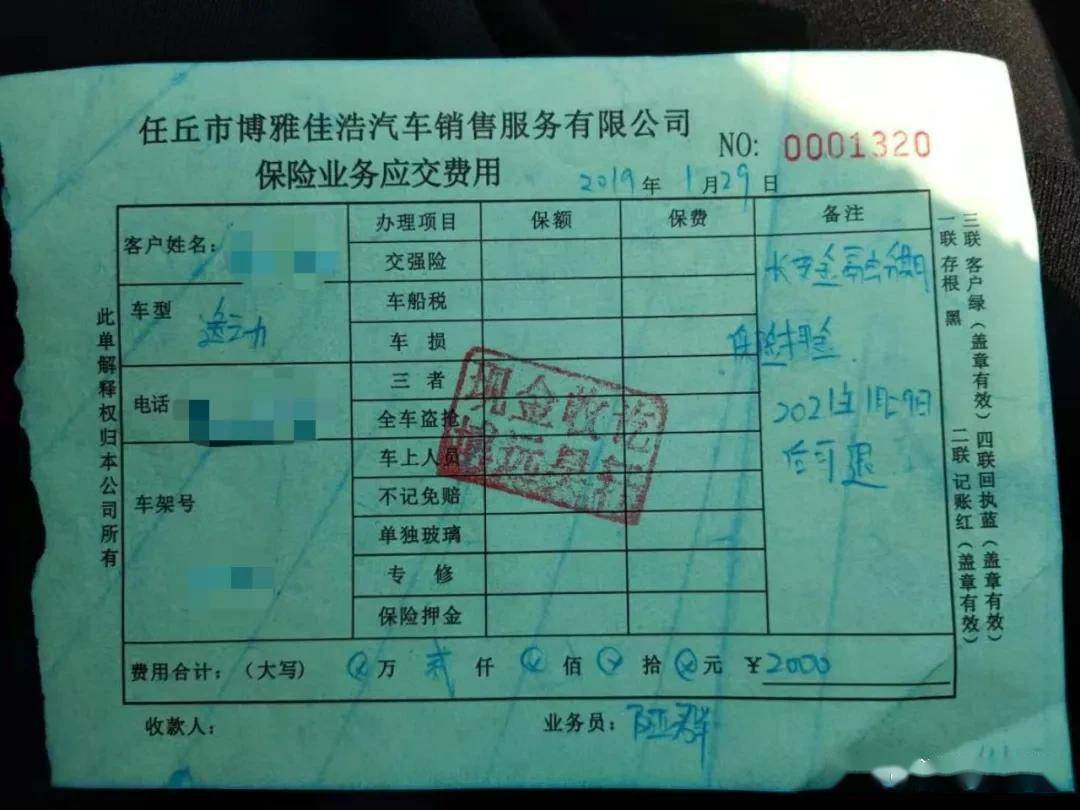 任丘市博雅佳浩汽车销售服务有限公司
NO: 0001320
保险业务应交费用
2019年1月29日
客户姓名:
办理项目 保额 保费 备注
交强险
车型
车船税
车 损
三 者
电话
全车盗抢
车上人员
车架号
不记免赔
单独玻璃
专 修
保险押金
长安金融
保险押金
2021年1月29日
后可退
现金收讫
费用合计:(大写) ⊗万贰仟⊗佰⊗拾⊗元 ¥2000
收款人:
业务员:
此单解释权归本公司所有
一联 存根 黑
二联 记账红(盖章有效)
三联 客户绿(盖章有效)
四联回执蓝(盖章有效)